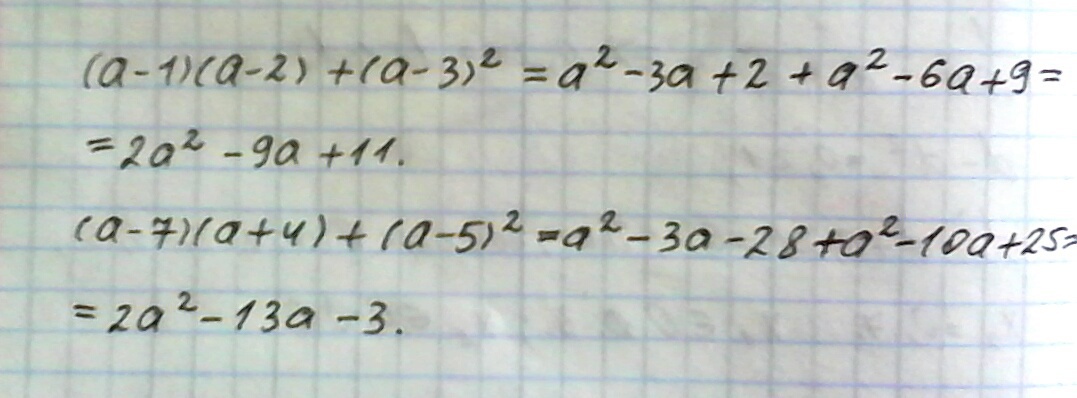 (a-1)(a-2) +(a-3)² = a² -3a +2 + a² -6a+9=
= 2a² -9a +11.
(a-7)(a+4) + (a-5)² = a² -3a -28 +a² -10a+25=
= 2a² -13a -3.